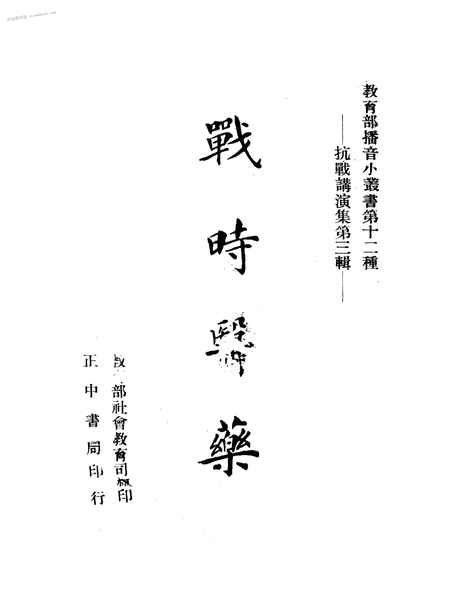 教育部播音小叢書第十二種
——抗戰講演集第三輯——
戰時醫藥
教育部社會教育司編印
正中書局印行